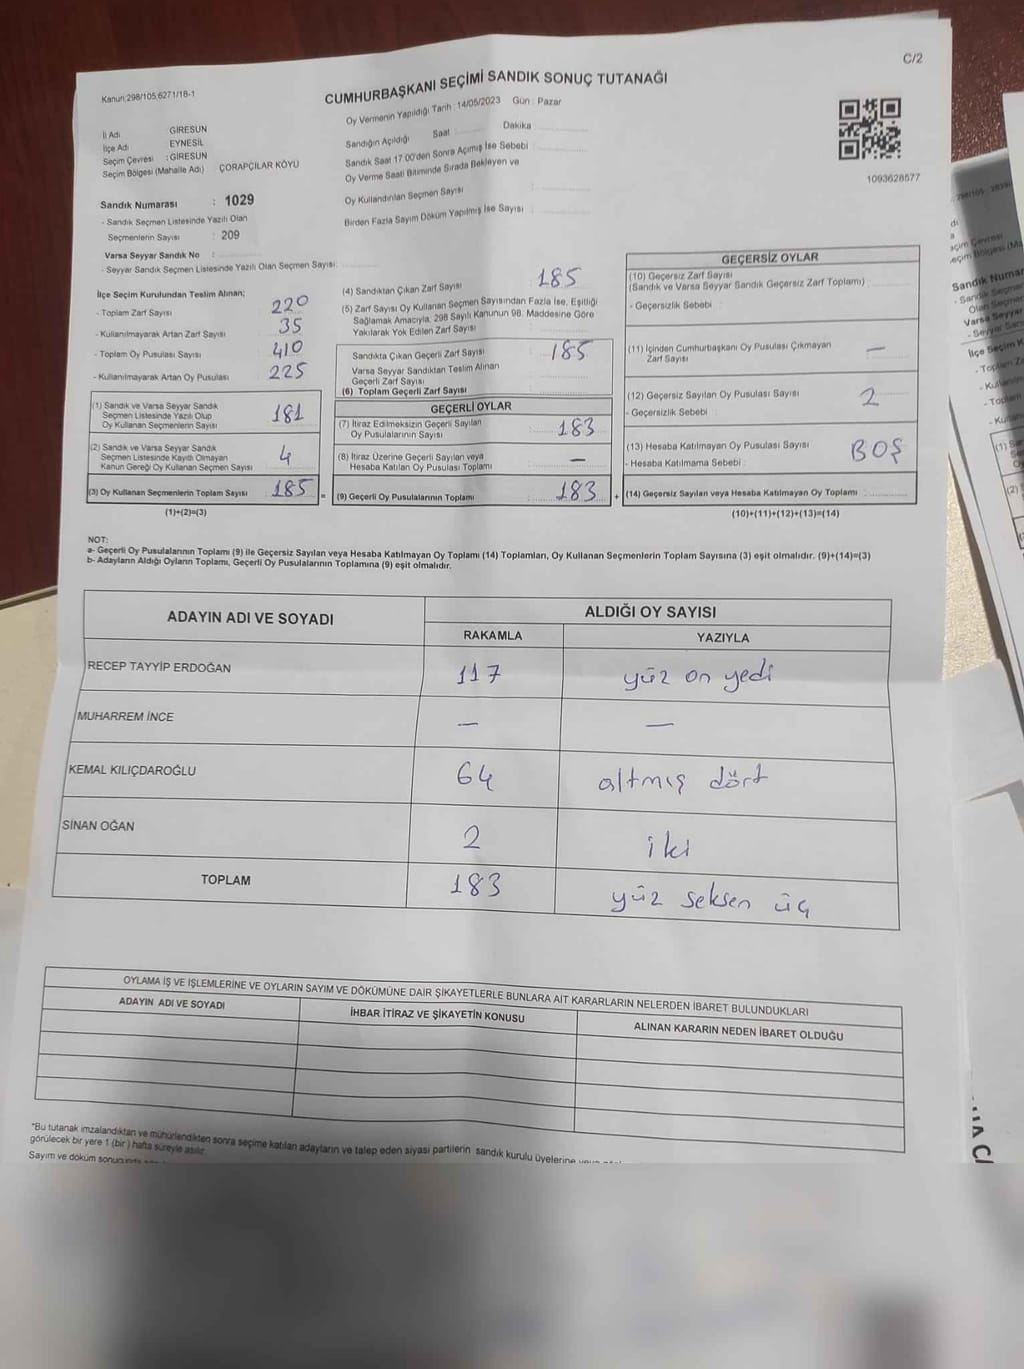 C/2
Kanun:298/105,6271/18-1
CUMHURBAŞKANI SEÇİMİ SANDIK SONUÇ TUTANAĞI
Oy Vermenin Yapıldığı Tarih :14/05/2023 Gün : Pazar
İl Adı GİRESUN
İlçe Adı EYNESİL
Seçim Çevresi :GİRESUN
Seçim Bölgesi (Mahalle Adı) ÇORAPÇILAR KÖYÜ
Sandık Numarası : 1029
- Sandık Seçmen Listesinde Yazılı Olan
Seçmenlerin Sayısı : 209
Varsa Seyyar Sandık No :
- Seyyar Sandık Seçmen Listesinde Yazılı Olan Seçmen Sayısı:
Sandığın Açıldığı Saat Dakika
Sandık Saat 17.00'den Sonra Açılmış İse Sebebi :
Oy Verme Saati Bitiminde Sırada Bekleyen ve
Oy Kullandırılan Seçmen Sayısı :
Birden Fazla Sayım Döküm Yapılmış İse Sayısı :
1093628577
İlçe Seçim Kurulundan Teslim Alınan;
- Toplam Zarf Sayısı 220
- Kullanılmayarak Artan Zarf Sayısı 35
- Toplam Oy Pusulası Sayısı 410
- Kullanılmayarak Artan Oy Pusulası 225
(1) Sandık ve Varsa Seyyar Sandık
Seçmen Listesinde Yazılı Olup
Oy Kullanan Seçmenlerin Sayısı 181
(2) Sandık ve Varsa Seyyar Sandık
Seçmen Listesinde Kayıtlı Olmayan
Kanun Gereği Oy Kullanan Seçmen Sayısı 4
(3) Oy Kullanan Seçmenlerin Toplam Sayısı 185 =
(1)+(2)=(3)
(4) Sandıktan Çıkan Zarf Sayısı : 185
(5) Zarf Sayısı Oy Kullanan Seçmen Sayısından Fazla İse, Eşitliği
Sağlamak Amacıyla, 298 Sayılı Kanunun 98. Maddesine Göre
Yakılarak Yok Edilen Zarf Sayısı
Sandıkta Çıkan Geçerli Zarf Sayısı 185
Varsa Seyyar Sandıktan Teslim Alınan
Geçerli Zarf Sayısı
(6) Toplam Geçerli Zarf Sayısı
GEÇERLİ OYLAR
(7) İtiraz Edilmeksizin Geçerli Sayılan
Oy Pusulalarının Sayısı 183
(8) İtiraz Üzerine Geçerli Sayılan veya
Hesaba Katılan Oy Pusulası Toplamı —
(9) Geçerli Oy Pusulalarının Toplamı 183 +
GEÇERSİZ OYLAR
(10) Geçersiz Zarf Sayısı
(Sandık ve Varsa Seyyar Sandık Geçersiz Zarf Toplamı) :
- Geçersizlik Sebebi :
(11) İçinden Cumhurbaşkanı Oy Pusulası Çıkmayan
Zarf Sayısı —
(12) Geçersiz Sayılan Oy Pusulası Sayısı 2
- Geçersizlik Sebebi :
(13) Hesaba Katılmayan Oy Pusulası Sayısı BOŞ
- Hesaba Katılmama Sebebi :
(14) Geçersiz Sayılan veya Hesaba Katılmayan Oy Toplamı
(10)+(11)+(12)+(13)=(14)
NOT:
a- Geçerli Oy Pusulalarının Toplamı (9) ile Geçersiz Sayılan veya Hesaba Katılmayan Oy Toplamı (14) Toplamları, Oy Kullanan Seçmenlerin Toplam Sayısına (3) eşit olmalıdır. (9)+(14)=(3)
b- Adayların Aldığı Oyların Toplamı, Geçerli Oy Pusulalarının Toplamına (9) eşit olmalıdır.
ADAYIN ADI VE SOYADI ALDIĞI OY SAYISI
RAKAMLA YAZIYLA
RECEP TAYYİP ERDOĞAN 117 yüz on yedi
MUHARREM İNCE — —
KEMAL KILIÇDAROĞLU 64 altmış dört
SİNAN OĞAN 2 iki
TOPLAM 183 yüz seksen üç
OYLAMA İŞ VE İŞLEMLERİNE VE OYLARIN SAYIM VE DÖKÜMÜNE DAİR ŞİKAYETLERLE BUNLARA AİT KARARLARIN NELERDEN İBARET BULUNDUKLARI
ADAYIN ADI VE SOYADI İHBAR İTİRAZ VE ŞİKAYETİN KONUSU ALINAN KARARIN NEDEN İBARET OLDUĞU
*Bu tutanak imzalandıktan ve mühürlendikten sonra seçime katılan adayların ve talep eden siyasi partilerin sandık kurulu üyelerine
görülecek bir yere 1 (bir) hafta süreyle asılır.
Sayım ve döküm